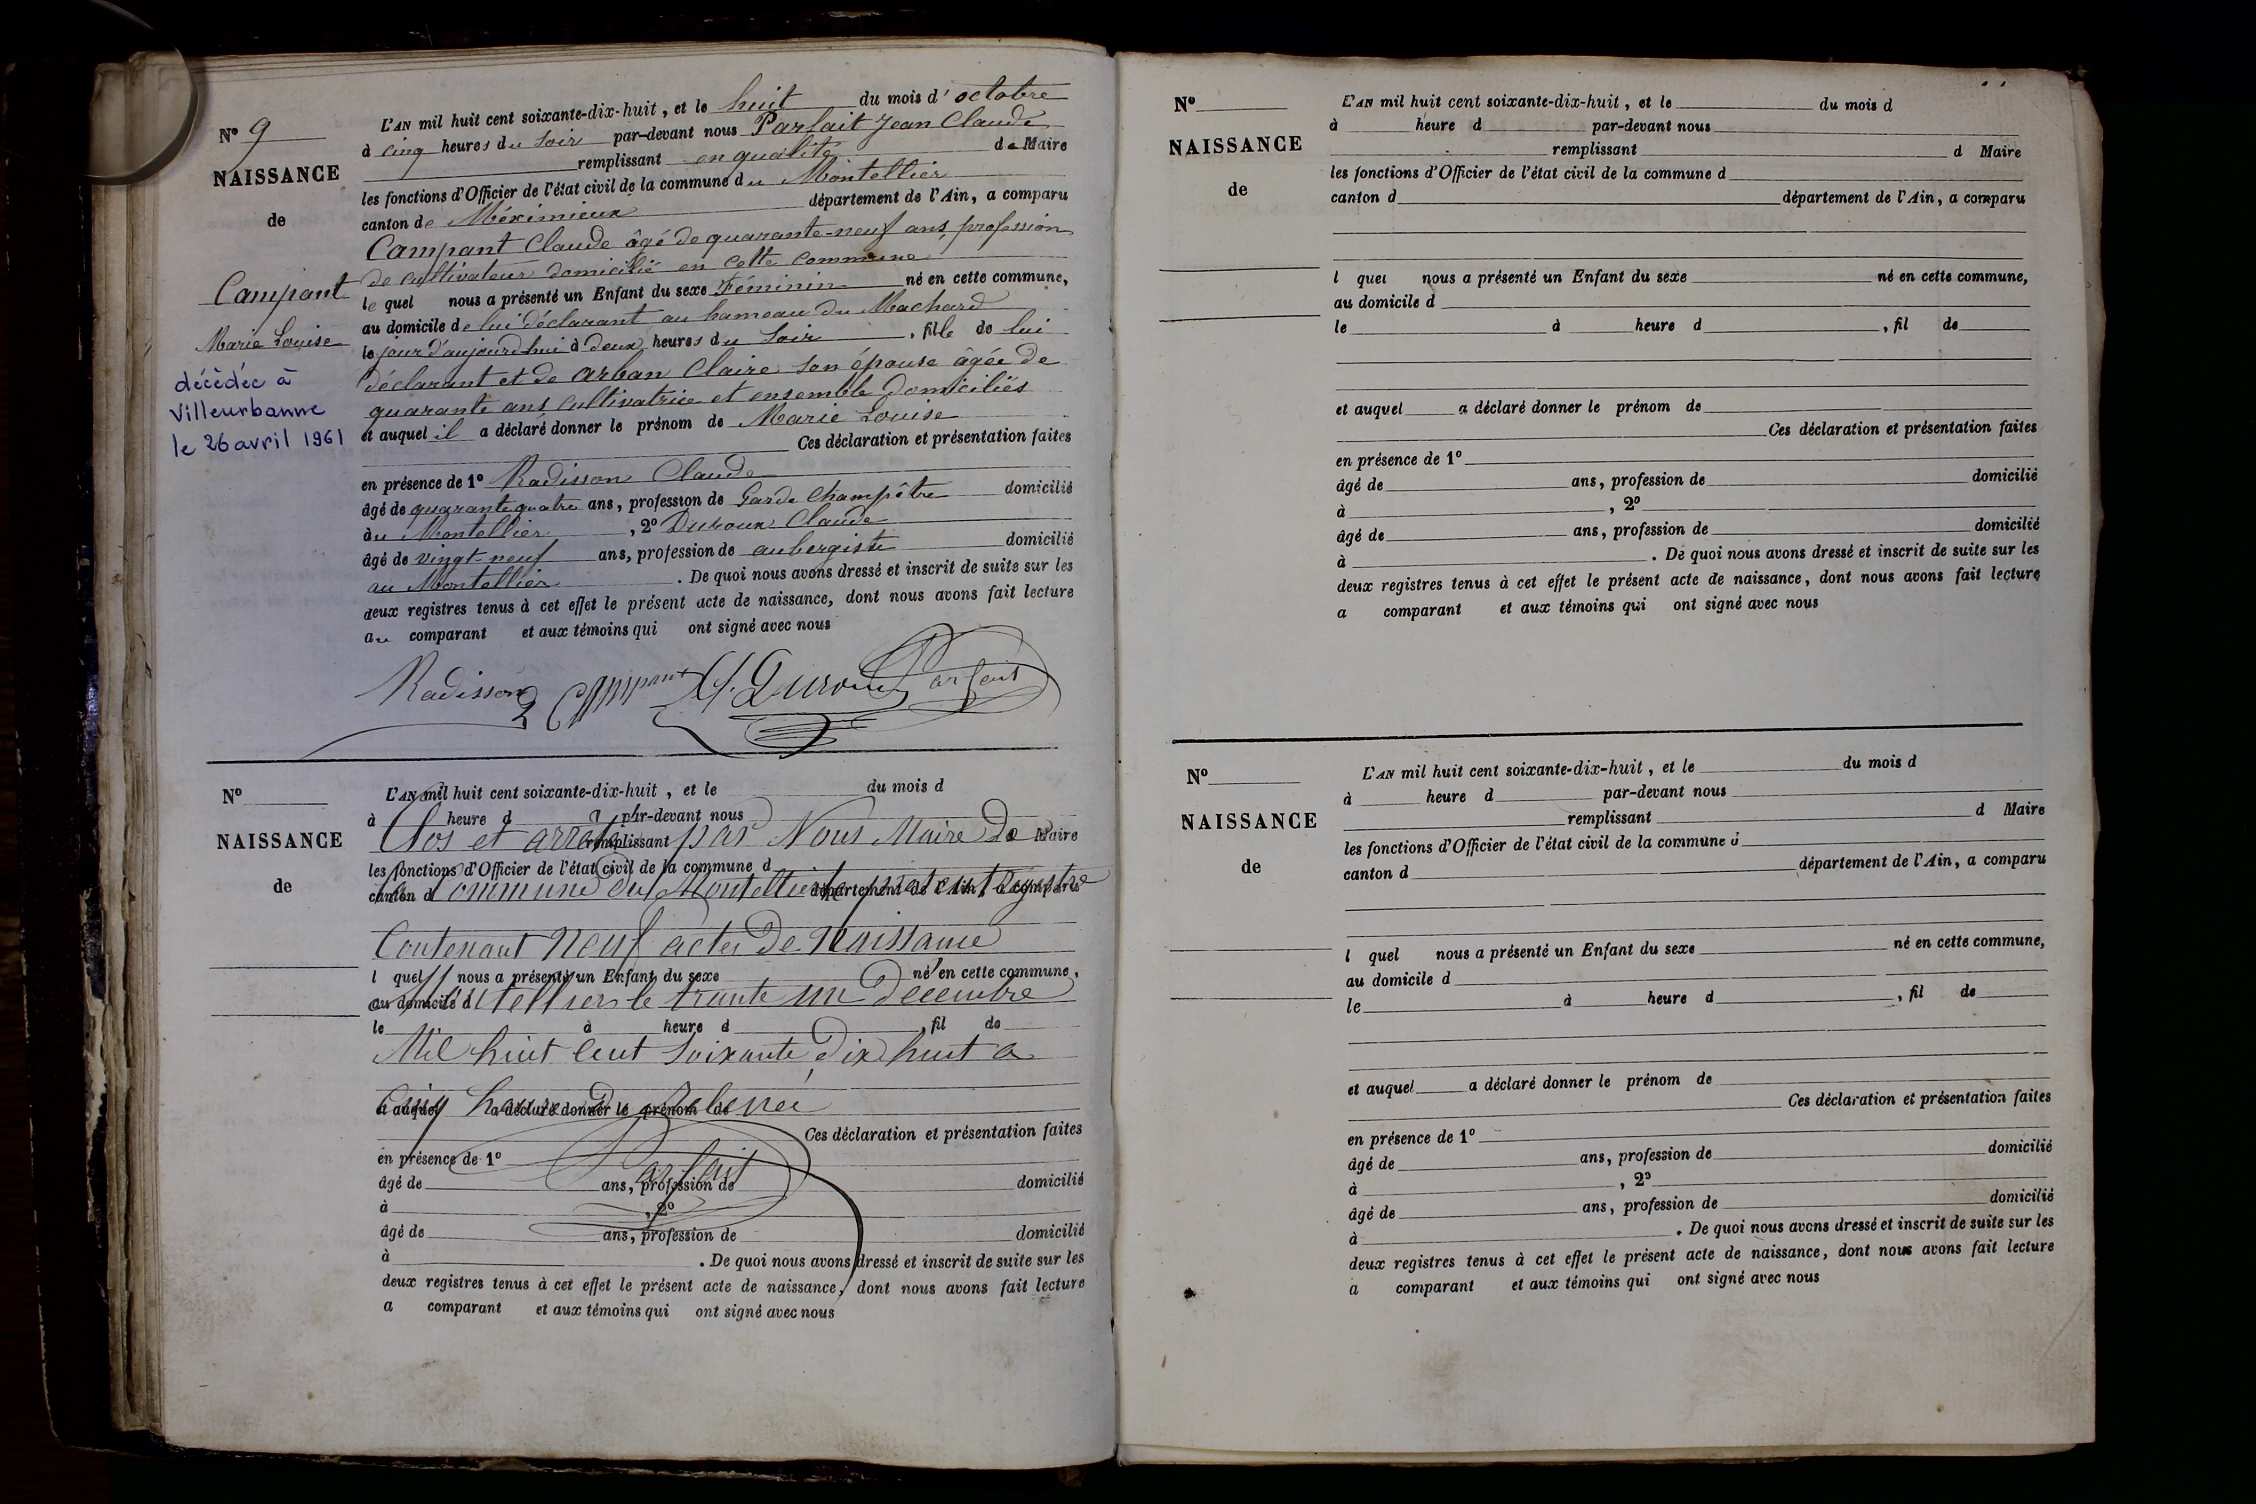 N° 9
NAISSANCE
de
Campant
Marie Louise
décédée à
Villeurbanne
le 26 avril 1961
L'AN mil huit cent soixante-dix-huit, et le huit du mois d'octobre
à cinq heures du soir par-devant nous Parfait Jean Claude
remplissant en qualité de Maire
les fonctions d'Officier de l'état civil de la commune du Montellier
canton de Méximieux département de l'Ain, a comparu
Campant Claude âgé de quarante-neuf ans, profession
de cultivateur domicilié en cette commune
lequel nous a présenté un Enfant du sexe Féminin né en cette commune,
au domicile de lui déclarant au hameau du Machard
le jour d'aujourd'hui à deux heures du soir, fille de lui
déclarant et de Arban Claire son épouse âgée de
quarante ans cultivatrice et ensemble domiciliés
et auquel il a déclaré donner le prénom de Marie Louise
Ces déclaration et présentation faites
en présence de 1° Radisson Claude
âgé de quarante quatre ans, profession de Garde Champêtre domicilié
au Montellier, 2° Duroux Claude
âgé de vingt-neuf ans, profession de aubergiste domicilié
au Montellier. De quoi nous avons dressé et inscrit de suite sur les
deux registres tenus à cet effet le présent acte de naissance, dont nous avons fait lecture
au comparant et aux témoins qui ont signé avec nous
Radisson Campant Cl. Duroux Parfait
N°
NAISSANCE
de
L'AN mil huit cent soixante-dix-huit, et le du mois d
à heure d par-devant nous
Clos et arrêté par Nous Maire de
remplissant d Maire
les fonctions d'Officier de l'état civil de la commune d
la Commune du Montellier le présent registre
canton d département de l'Ain, a comparu
Contenant Neuf actes de Naissance
l quel nous a présenté un Enfant du sexe né en cette commune,
au Montellier le trente un Décembre
au domicile d
le à heure d , fil de
Mil huit cent soixante dix huit a
Cinq heures du
et auquel a déclaré donner le prénom de
Ces déclaration et présentation faites
en présence de 1°
Parfait
âgé de ans, profession de domicilié
à , 2°
âgé de ans, profession de domicilié
à . De quoi nous avons dressé et inscrit de suite sur les
deux registres tenus à cet effet le présent acte de naissance, dont nous avons fait lecture
a comparant et aux témoins qui ont signé avec nous
N°
NAISSANCE
de
L'AN mil huit cent soixante-dix-huit, et le du mois d
à heure d par-devant nous
remplissant d Maire
les fonctions d'Officier de l'état civil de la commune d
canton d département de l'Ain, a comparu
l quel nous a présenté un Enfant du sexe né en cette commune,
au domicile d
le à heure d , fil de
et auquel a déclaré donner le prénom de
Ces déclaration et présentation faites
en présence de 1°
âgé de ans, profession de domicilié
à , 2°
âgé de ans, profession de domicilié
à . De quoi nous avons dressé et inscrit de suite sur les
deux registres tenus à cet effet le présent acte de naissance, dont nous avons fait lecture
a comparant et aux témoins qui ont signé avec nous
N°
NAISSANCE
de
L'AN mil huit cent soixante-dix-huit, et le du mois d
à heure d par-devant nous
remplissant d Maire
les fonctions d'Officier de l'état civil de la commune d
canton d département de l'Ain, a comparu
l quel nous a présenté un Enfant du sexe né en cette commune,
au domicile d
le à heure d , fil de
et auquel a déclaré donner le prénom de
Ces déclaration et présentation faites
en présence de 1°
âgé de ans, profession de domicilié
à , 2°
âgé de ans, profession de domicilié
à . De quoi nous avons dressé et inscrit de suite sur les
deux registres tenus à cet effet le présent acte de naissance, dont nous avons fait lecture
a comparant et aux témoins qui ont signé avec nous